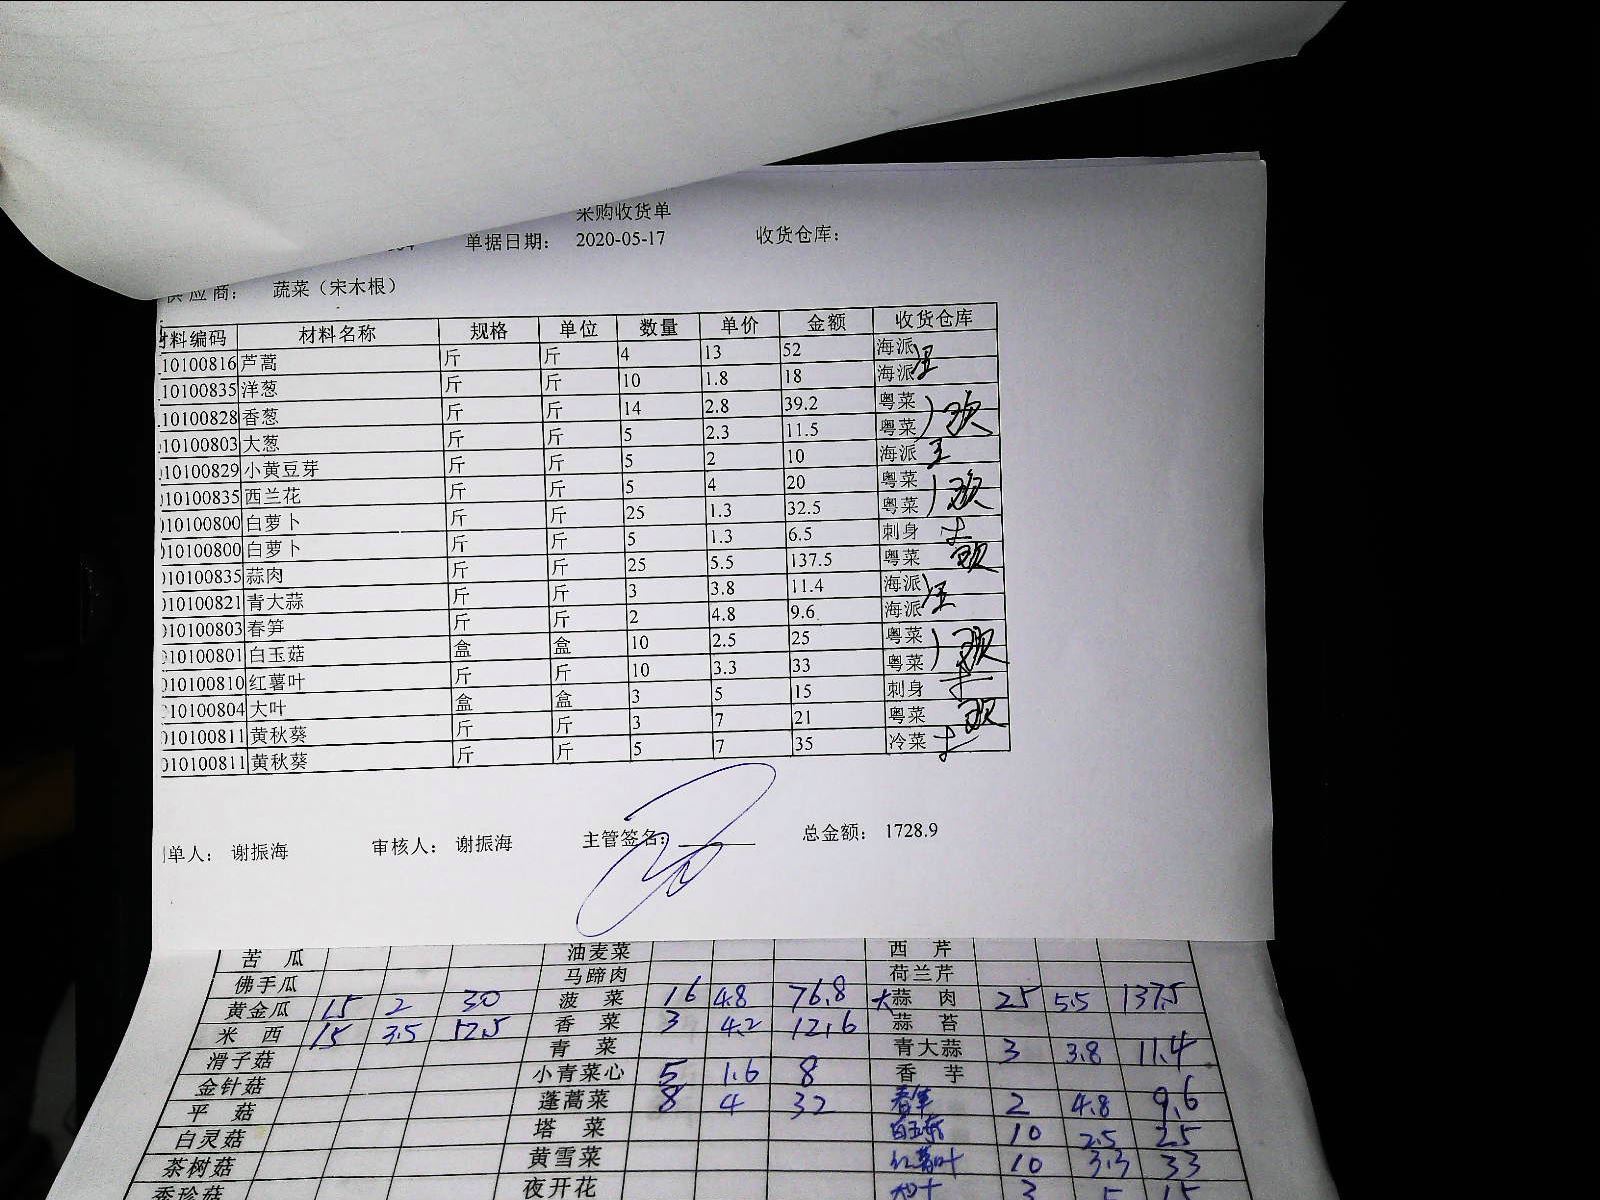 采购收货单
单据日期： 2020-05-17 收货仓库：
供应商： 蔬菜（宋木根）
材料编码 材料名称 规格 单位 数量 单价 金额 收货仓库
10100816 芦蒿 斤 斤 4 13 52 海派
10100835 洋葱 斤 斤 10 1.8 18 海派
10100828 香葱 斤 斤 14 2.8 39.2 粤菜
10100803 大葱 斤 斤 5 2.3 11.5 粤菜
10100829 小黄豆芽 斤 斤 5 2 10 海派
10100835 西兰花 斤 斤 5 4 20 粤菜
10100800 白萝卜 斤 斤 25 1.3 32.5 粤菜
10100800 白萝卜 斤 斤 5 1.3 6.5 刺身
10100835 蒜肉 斤 斤 25 5.5 137.5 粤菜
10100821 青大蒜 斤 斤 3 3.8 11.4 海派
10100803 春笋 斤 斤 2 4.8 9.6 海派
10100801 白玉菇 盒 盒 10 2.5 25 粤菜
010100810 红薯叶 斤 斤 10 3.3 33 粤菜
10100804 大叶 盒 盒 3 5 15 刺身
010100811 黄秋葵 斤 斤 3 7 21 粤菜
010100811 黄秋葵 斤 斤 5 7 35 冷菜
单人： 谢振海 审核人： 谢振海 主管签名： 总金额： 1728.9
苦瓜 油麦菜 西芹
佛手瓜 马蹄肉 荷兰芹
黄金瓜 15 2 30 菠菜 16 4.8 76.8 大蒜肉 25 5.5 137.5
米西 15 3.5 52.5 香菜 3 4.2 12.6 蒜苔
滑子菇 青菜 青大蒜 3 3.8 11.4
金针菇 小青菜心 5 1.6 8 香芋
平菇 蓬蒿菜 8 4 32 春笋 2 4.8 9.6
白灵菇 塔菜 白玉菇 10 2.5 25
茶树菇 黄雪菜 红薯叶 10 3.3 33
秀珍菇 夜开花 3 5 15